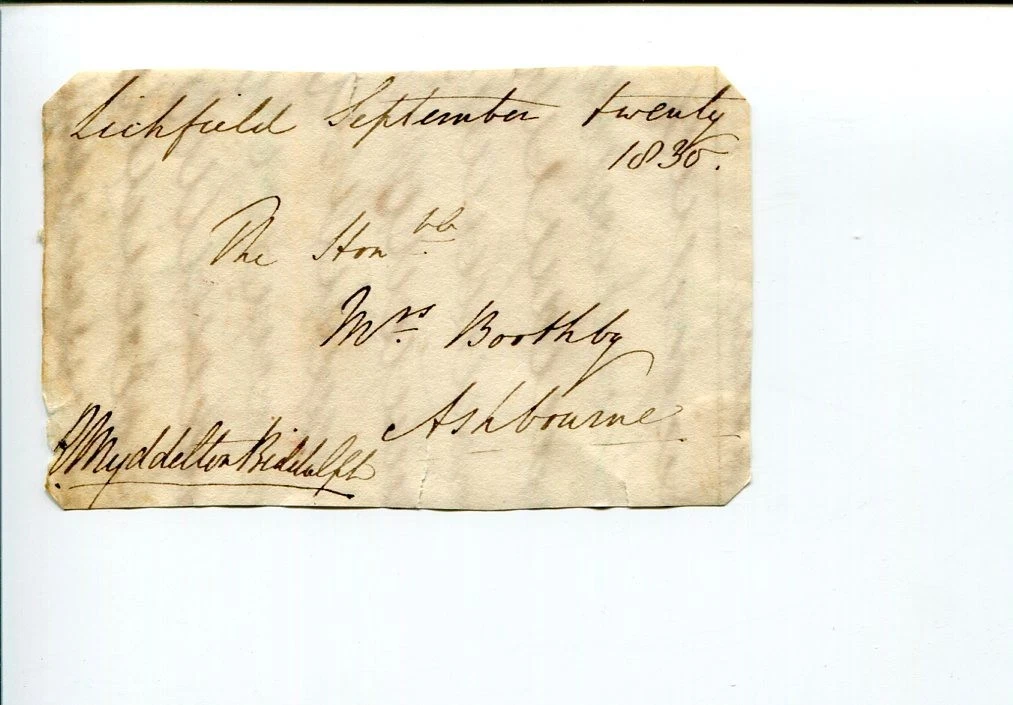 Lichfield September twenty
1830.
The Honble
Mrs. Boothby
Ashbourne
R Myddelton Biddulph